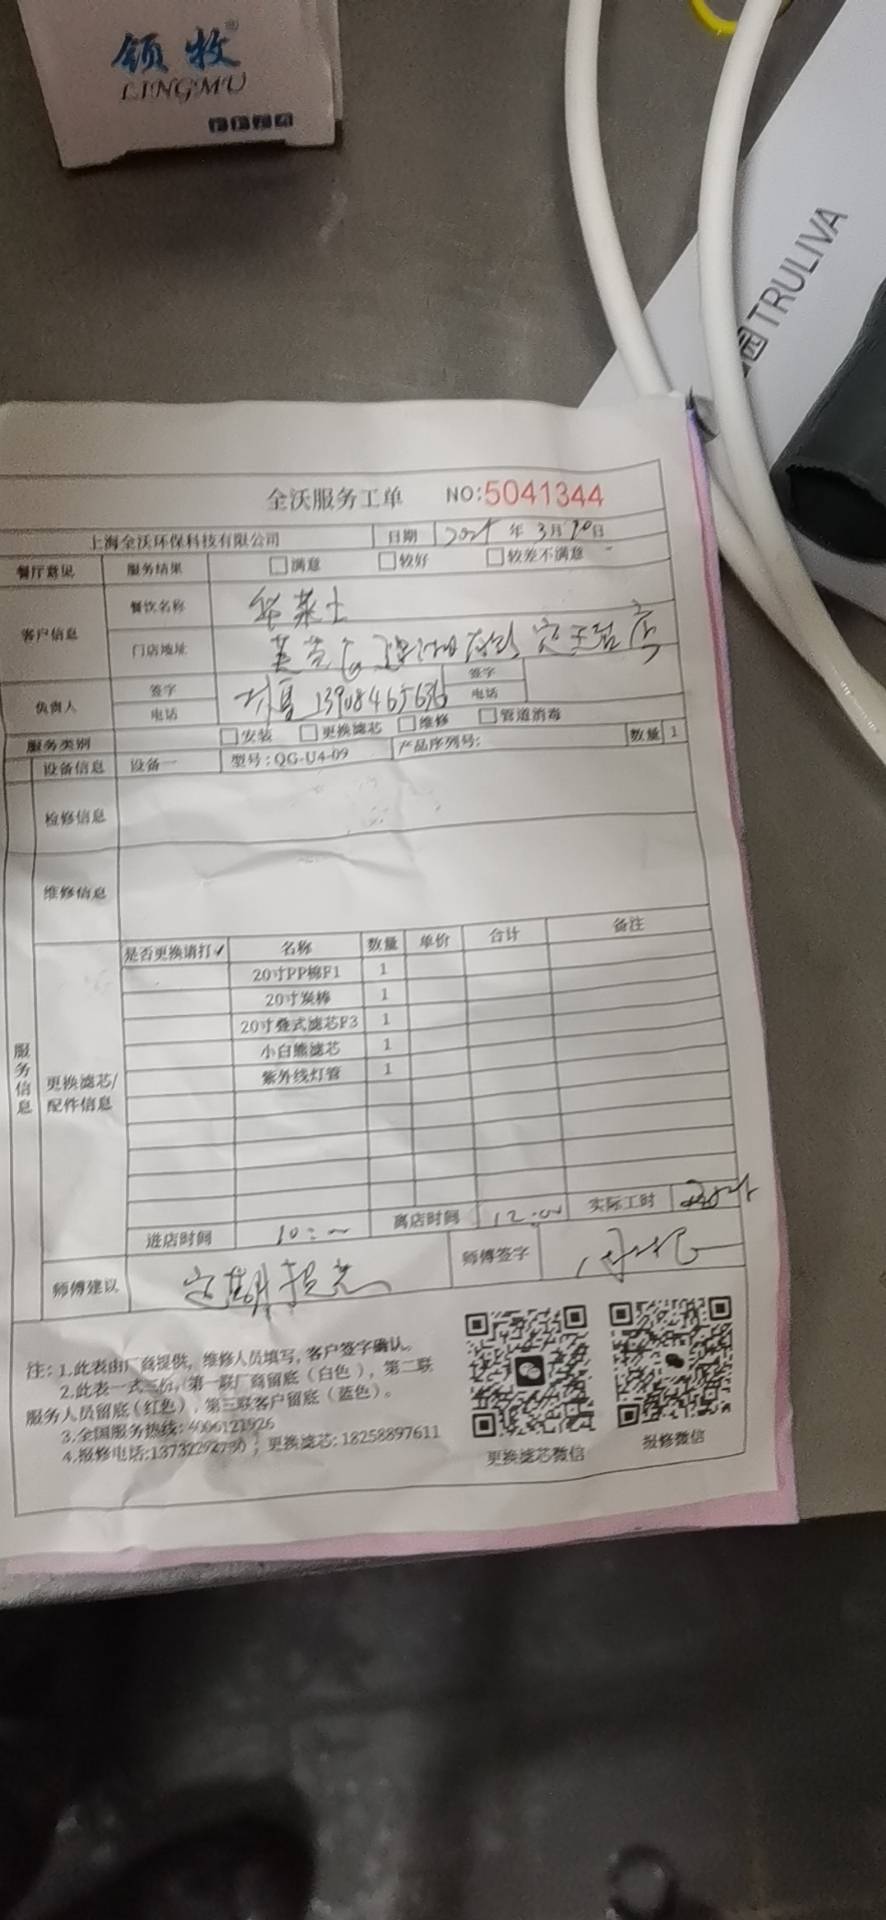 领牧
LINGMU
TRULIVA
全沃服务工单 NO:5041344
上海全沃环保科技有限公司 日期 年 3月 日
餐厅意见 服务结果 □满意 □较好 □较差不满意
客户信息 餐饮名称 华莱士
门店地址 店
负责人 签字 签字
电话 电话
服务类别 □安装 □更换滤芯 □维修 □管道消毒
设备信息 设备一 型号:QG-U4-09 产品序列号: 数量 1
检修信息
维修信息
服务信息
更换滤芯/配件信息
是否更换请打✓ 名称 数量 单价 合计 备注
20寸PP棉F1 1
20寸炭棒 1
20寸叠式滤芯F3 1
小白熊滤芯 1
紫外线灯管 1
进店时间 10:00 离店时间 12:00 实际工时
师傅建议 定期 师傅签字
注:1.此表由厂商提供,维修人员填写,客户签字确认。
2.此表一式三份,第一联厂商留底(白色),第二联
服务人员留底(红色),第三联客户留底(蓝色)。
3.全国服务热线:4006121926
4.报修电话: ;更换滤芯:18258897611
更换滤芯微信
报修微信